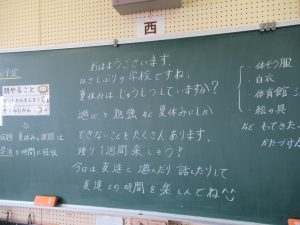 西
おはようございます。
ひさしぶりの学校ですね。
夏休みは じゅうじつしていますか？
遊びや勉強など夏休みにしか
できないこともたくさんあります。
残り1週間楽しもう？
今日は友達と遊んだり話したりして
友達との時間を楽しんでね
朝やること
夏休みの課題は
の時間に回収
・体そう服
・白衣
・体育館
・絵の具
など もてきた
かたづけ